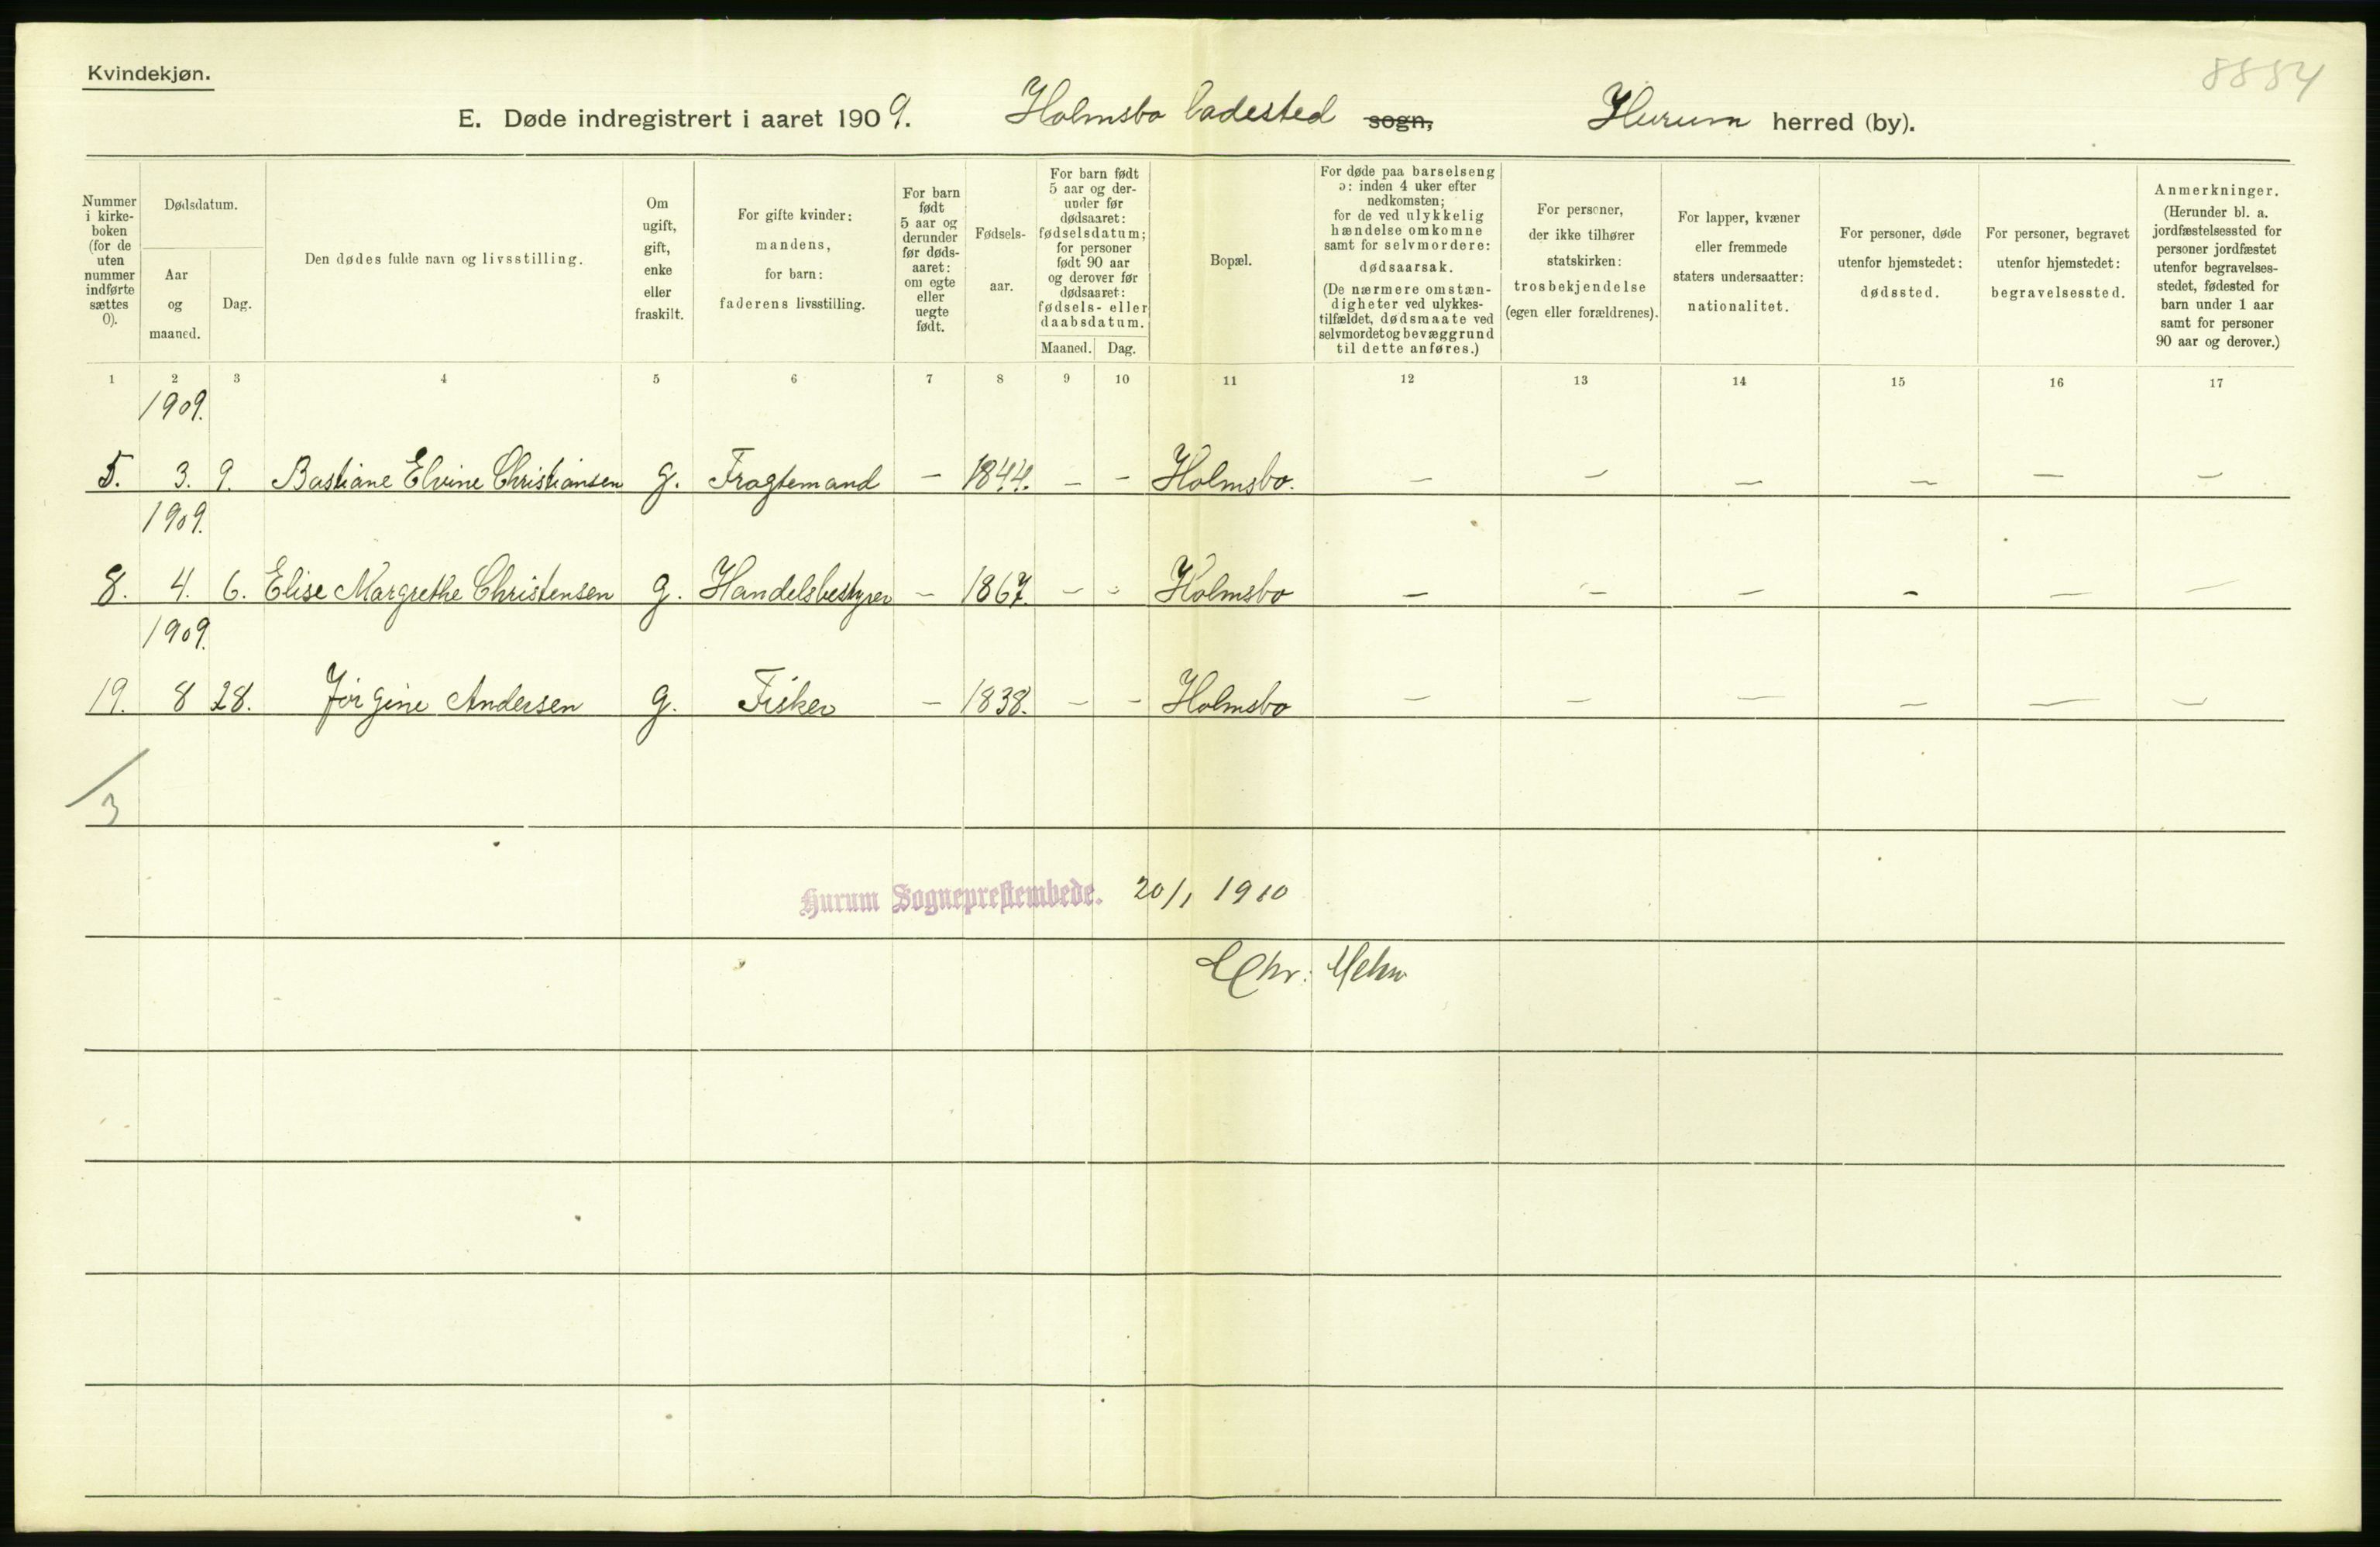 Kvindekjøn.
8884
E. Døde indregistrert i aaret 1909. Holmsbo ladested sogn, Hurum herred (by).
Nummer i kirke-boken (for de uten nummer indførte sættes 0).
Dødsdatum.
Aar og maaned.
Dag.
Den dødes fulde navn og livsstilling.
Om ugift, gift, enke eller fraskilt.
For gifte kvinder: mandens, for barn: faderens livsstilling.
For barn født 5 aar og derunder før døds-aaret: om egte eller uegte født.
Fødsels-aar.
For barn født 5 aar og der-under før dødsaaret: fødselsdatum; for personer født 90 aar og derover før dødsaaret: fødsels- eller daabsdatum.
Maaned. Dag.
Bopæl.
For døde paa barselseng ɔ: inden 4 uker efter nedkomsten; for de ved ulykkelig hændelse omkomne samt for selvmordere: dødsaarsak. (De nærmere omstæn-digheter ved ulykkes-tilfældet, dødsmaate ved selvmordet og bevæggrund til dette anføres.)
For personer, der ikke tilhører statskirken: trosbekjendelse (egen eller forældrenes).
For lapper, kvæner eller fremmede staters undersaatter: nationalitet.
For personer, døde utenfor hjemstedet: dødssted.
For personer, begravet utenfor hjemstedet: begravelsessted.
Anmerkninger. (Herunder bl. a. jordfæstelsessted for personer jordfæstet utenfor begravelses-stedet, fødested for barn under 1 aar samt for personer 90 aar og derover.)
1 2 3 4 5 6 7 8 9 10 11 12 13 14 15 16 17
1909.
5. 3. 9. Bastiane Elvine Christiansen g. Fragtemand – 1844. – – Holmsbo. – – – – – –
1909.
8. 4. 6. Elise Margrethe Christensen g. Handelsbestyrer – 1867. – – Holmsbo – – – – – –
1909.
19. 8 28. Jørgine Andersen g. Fisker – 1838. – – Holmsbo – – – – – –
3
Hurum Sogneprestembede. 20/1 1910
Chr: